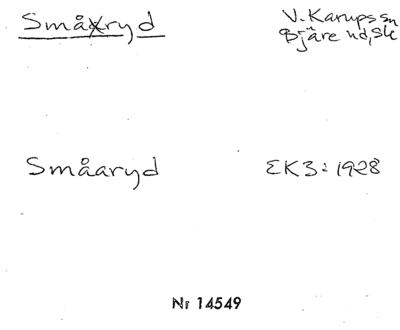 Småryd
V. Karups sn
Bjäre hd, Sk
Småaryd
EK3: 1928
Nr 14549